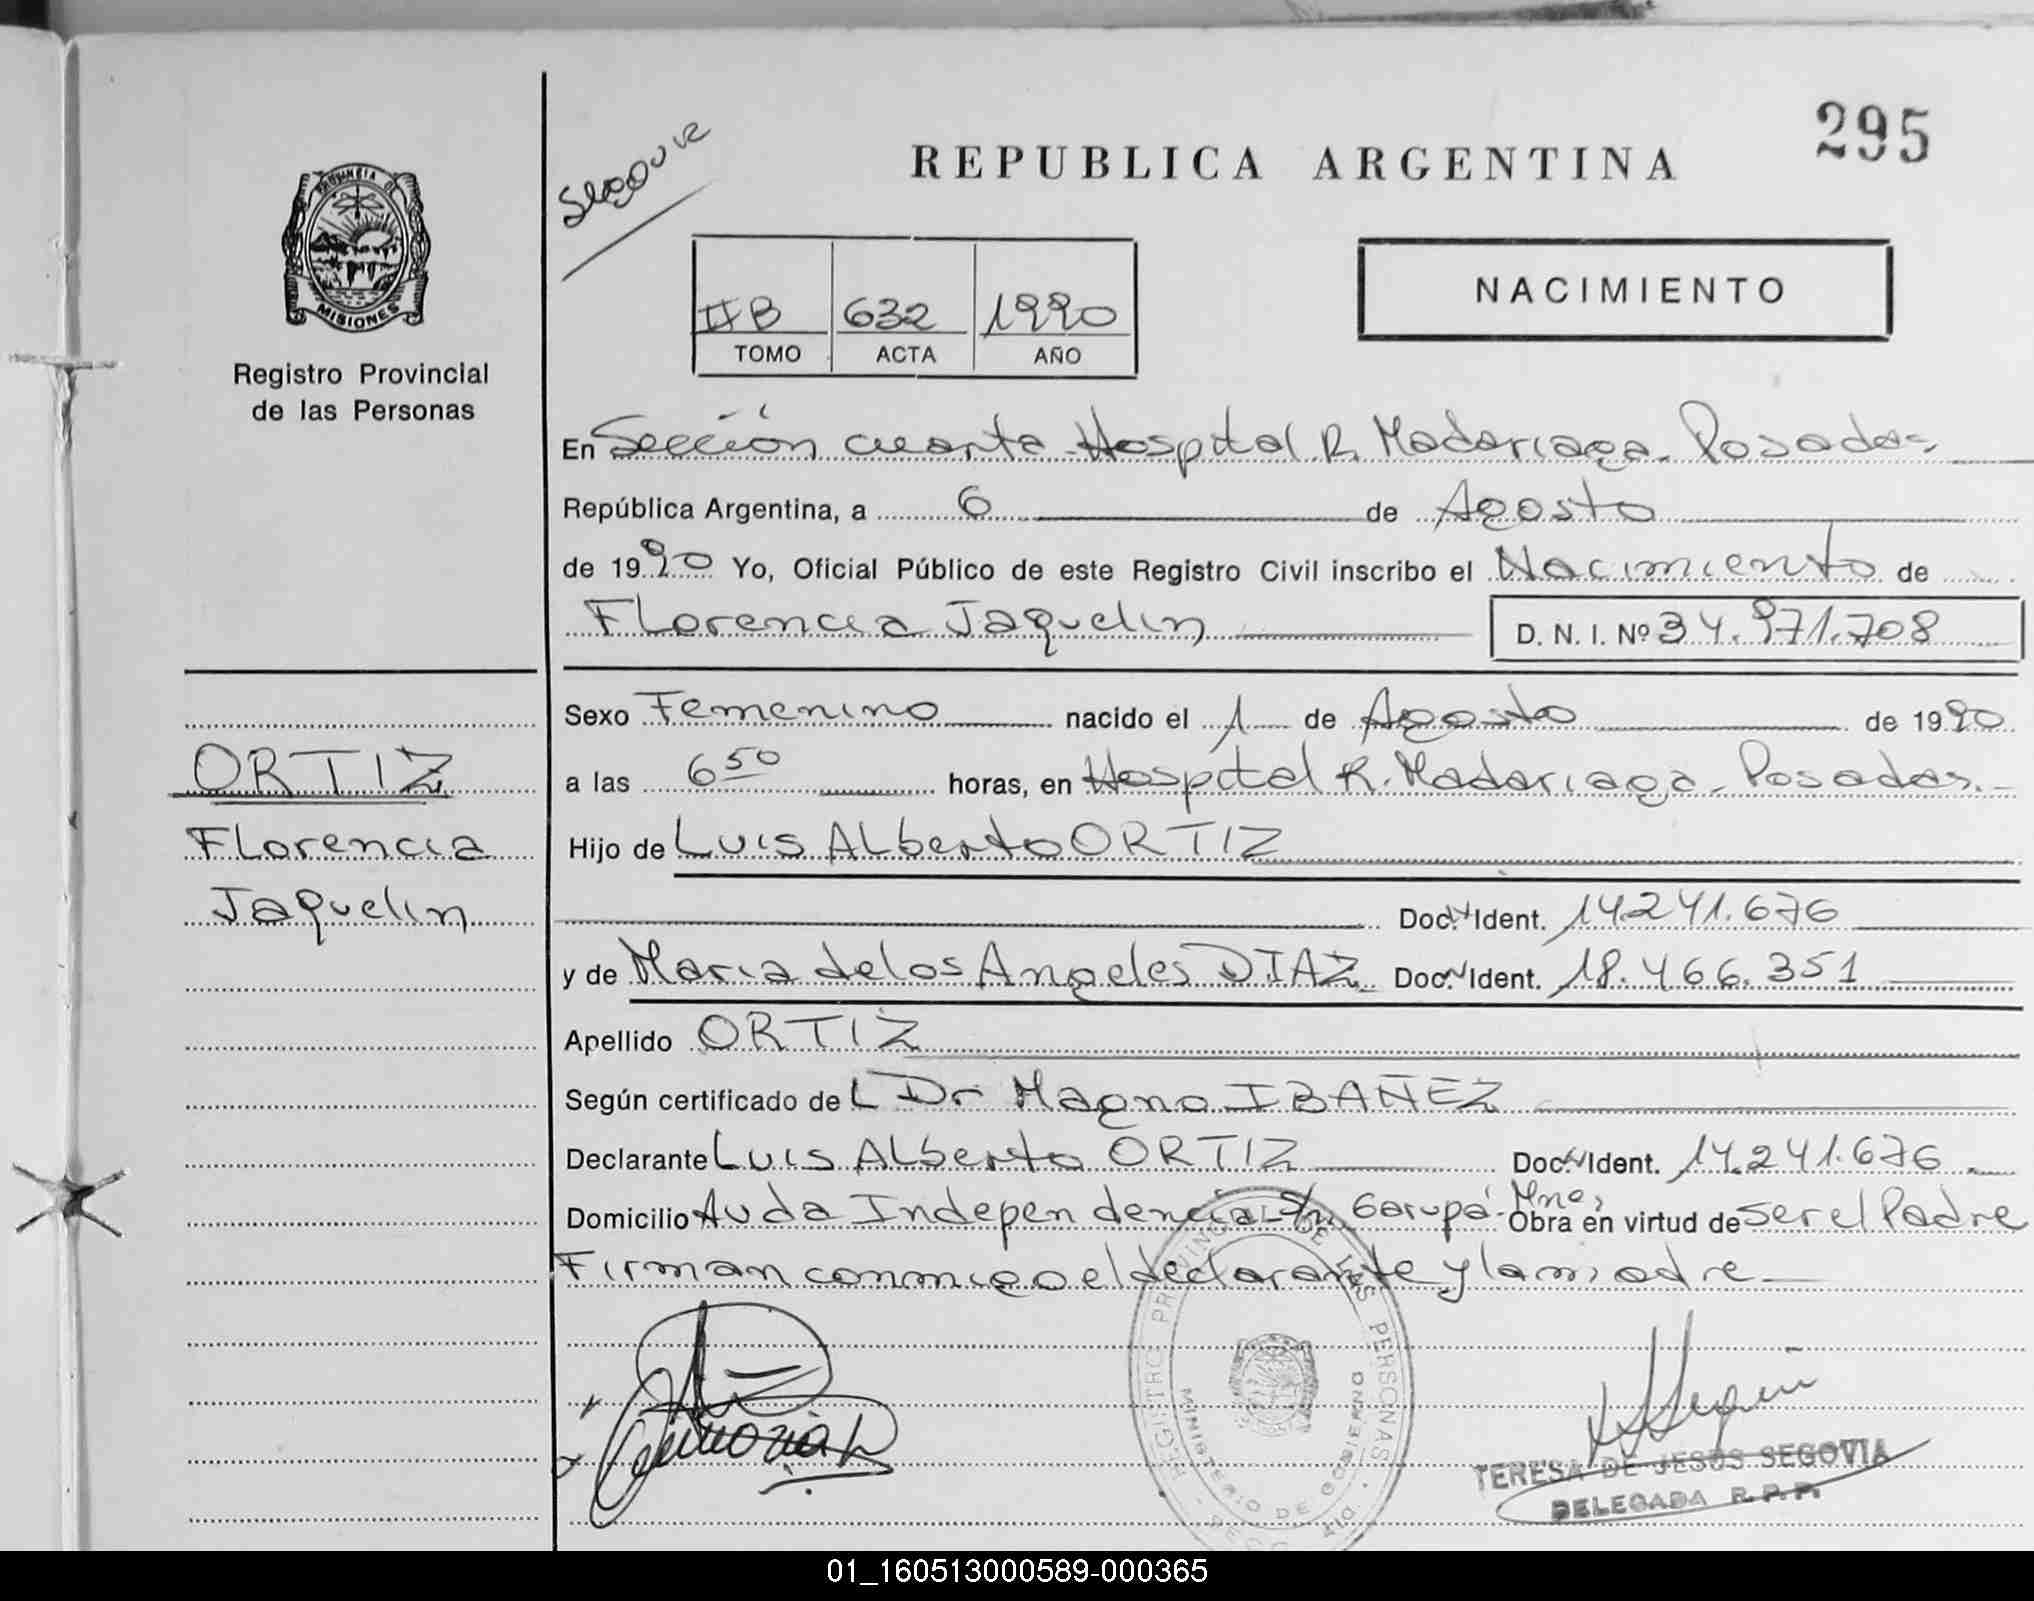 295
REPUBLICA ARGENTINA
PROVINCIA DE
MISIONES
Registro Provincial
de las Personas
NACIMIENTO
IIB 632 1990
TOMO ACTA AÑO
En Sección cuarta-Hospital R. Madariaga-Posadas-
República Argentina, a 6 de Agosto
de 1990 Yo, Oficial Público de este Registro Civil inscribo el Nacimiento de
Florencia Jaquelin D. N. I. Nº 34.971.708
Sexo Femenino nacido el 1 de Agosto de 1990
a las 6 50 horas, en Hospital R. Madariaga-Posadas.-
ORTIZ
Florencia
Jaquelin
Hijo de Luis Alberto ORTIZ
Doc. Ident. 14.241.676
y de Maria de los Angeles DIAZ Doc. Ident. 18.466.351
Apellido ORTIZ
Según certificado del Dr Magno IBAÑEZ
Declarante Luis Alberto ORTIZ Doc. Ident. 14.241.676
Domicilio Avda Independencia-S/n Garupá-Mnes Obra en virtud de ser el Padre
Firman conmigo el declarante y la madre
REGISTRO PROVINCIAL DE LAS PERSONAS
MINISTERIO DE GOBIERNO
TERESA DE JESUS SEGOVIA
DELEGADA R.P.P.
01_160513000589-000365